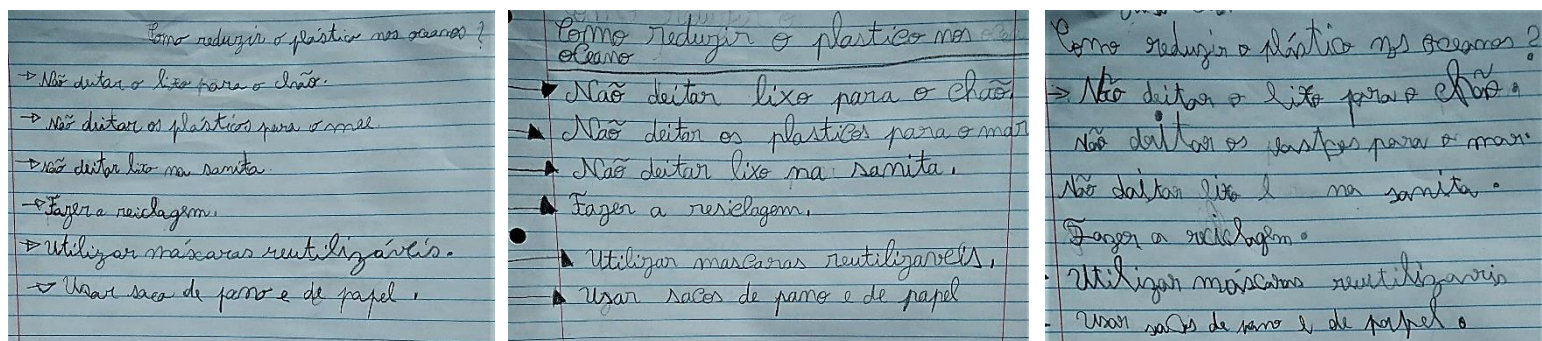 Como reduzir o plástico nos oceanos?
→ Não deitar o lixo para o chão.
→ Não deitar os plásticos para o mar.
→ Não deitar lixo na sanita.
→ Fazer a reiclagem.
→ Utilizar máscaras reutilizáveis.
→ Usar saco de pano e de papel.
Como reduzir o plastico nos
oceano
Naõ deitar lixo para o chaõ
Não deitar os plasticos para o mar
Não deitar lixo na sanita.
Fazer a resiclagem.
Utilizar mascaras reutilizaveis.
Usar sacos de pano e de papel
Como reduzir o plástico nos oceanos?
→ Não deitar o lixo para o chão.
Não daitar os para o mar.
Não daitar lixo na sanita.
Fazer a reciclagem.
Utilizar máscaras reutilizavris
Usar sacos de pano e de papel.